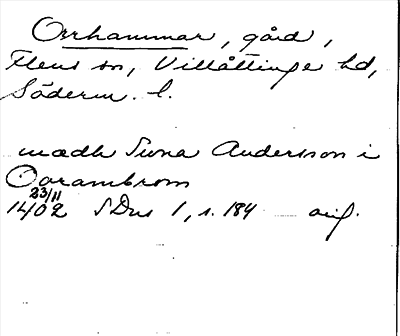 Orrhammar, gård,
Flens sn, Villåttinge hd,
Söderm. l.
medh Swna Andersson i
Oorambrom
23/11
1402 SDns 1, s. 184 avs.